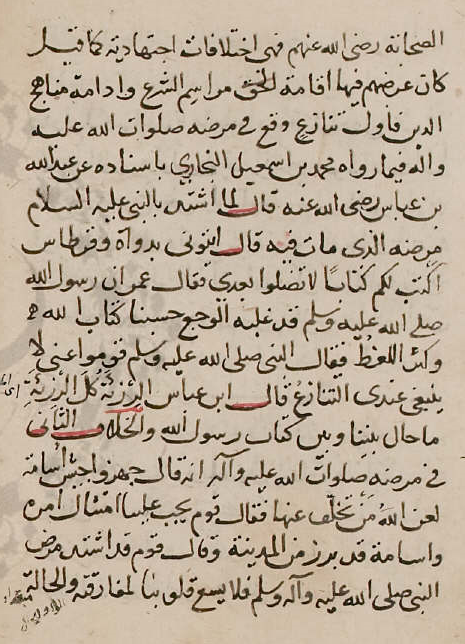 الصحابة رضي الله عنهم فهي اختلافات اجتهادية كما قيل
كان غرضهم فيها اقامة الحق مراسم الشرع وادامة مناهج
الدين فاول تنازع وقع في مرضه صلوات الله عليه
واله فيما رواه محمد بن اسمعيل البخاري باسناده عن عبدالله
بن عباس رضى الله عنه قال لما اشتد بالنبي عليه السلام
مرضه الذى مات فيه قال ايتونى بدواة وقرطاس
اكتب لكم كتابًا لا تضلوا بعدي فقال عمر ان رسول الله
صلى الله عليه وسلم قد غلبه الوجع حسبنا كتاب الله
وكثر اللغط فقال النبي صلى الله عليه وسلم قوموا عني لا
ينبغي عندى التنازع قال ابن عباس الرزئة كل الرزئة
ما حال بيننا وبين كتاب رسول الله والخلاف الثانى
في مرضه صلوات الله عليه وآله انه قال جهزوا جيش أسامة
لعن الله من تخلف عنها فقال قوم يجب علينا امتثال امره
واسامة قد برز من المدينة وقال قوم قد اشتد مرض
النبي صلى الله عليه وآله وسلم فلا يسع قلوبنا لمفارقته والحالة